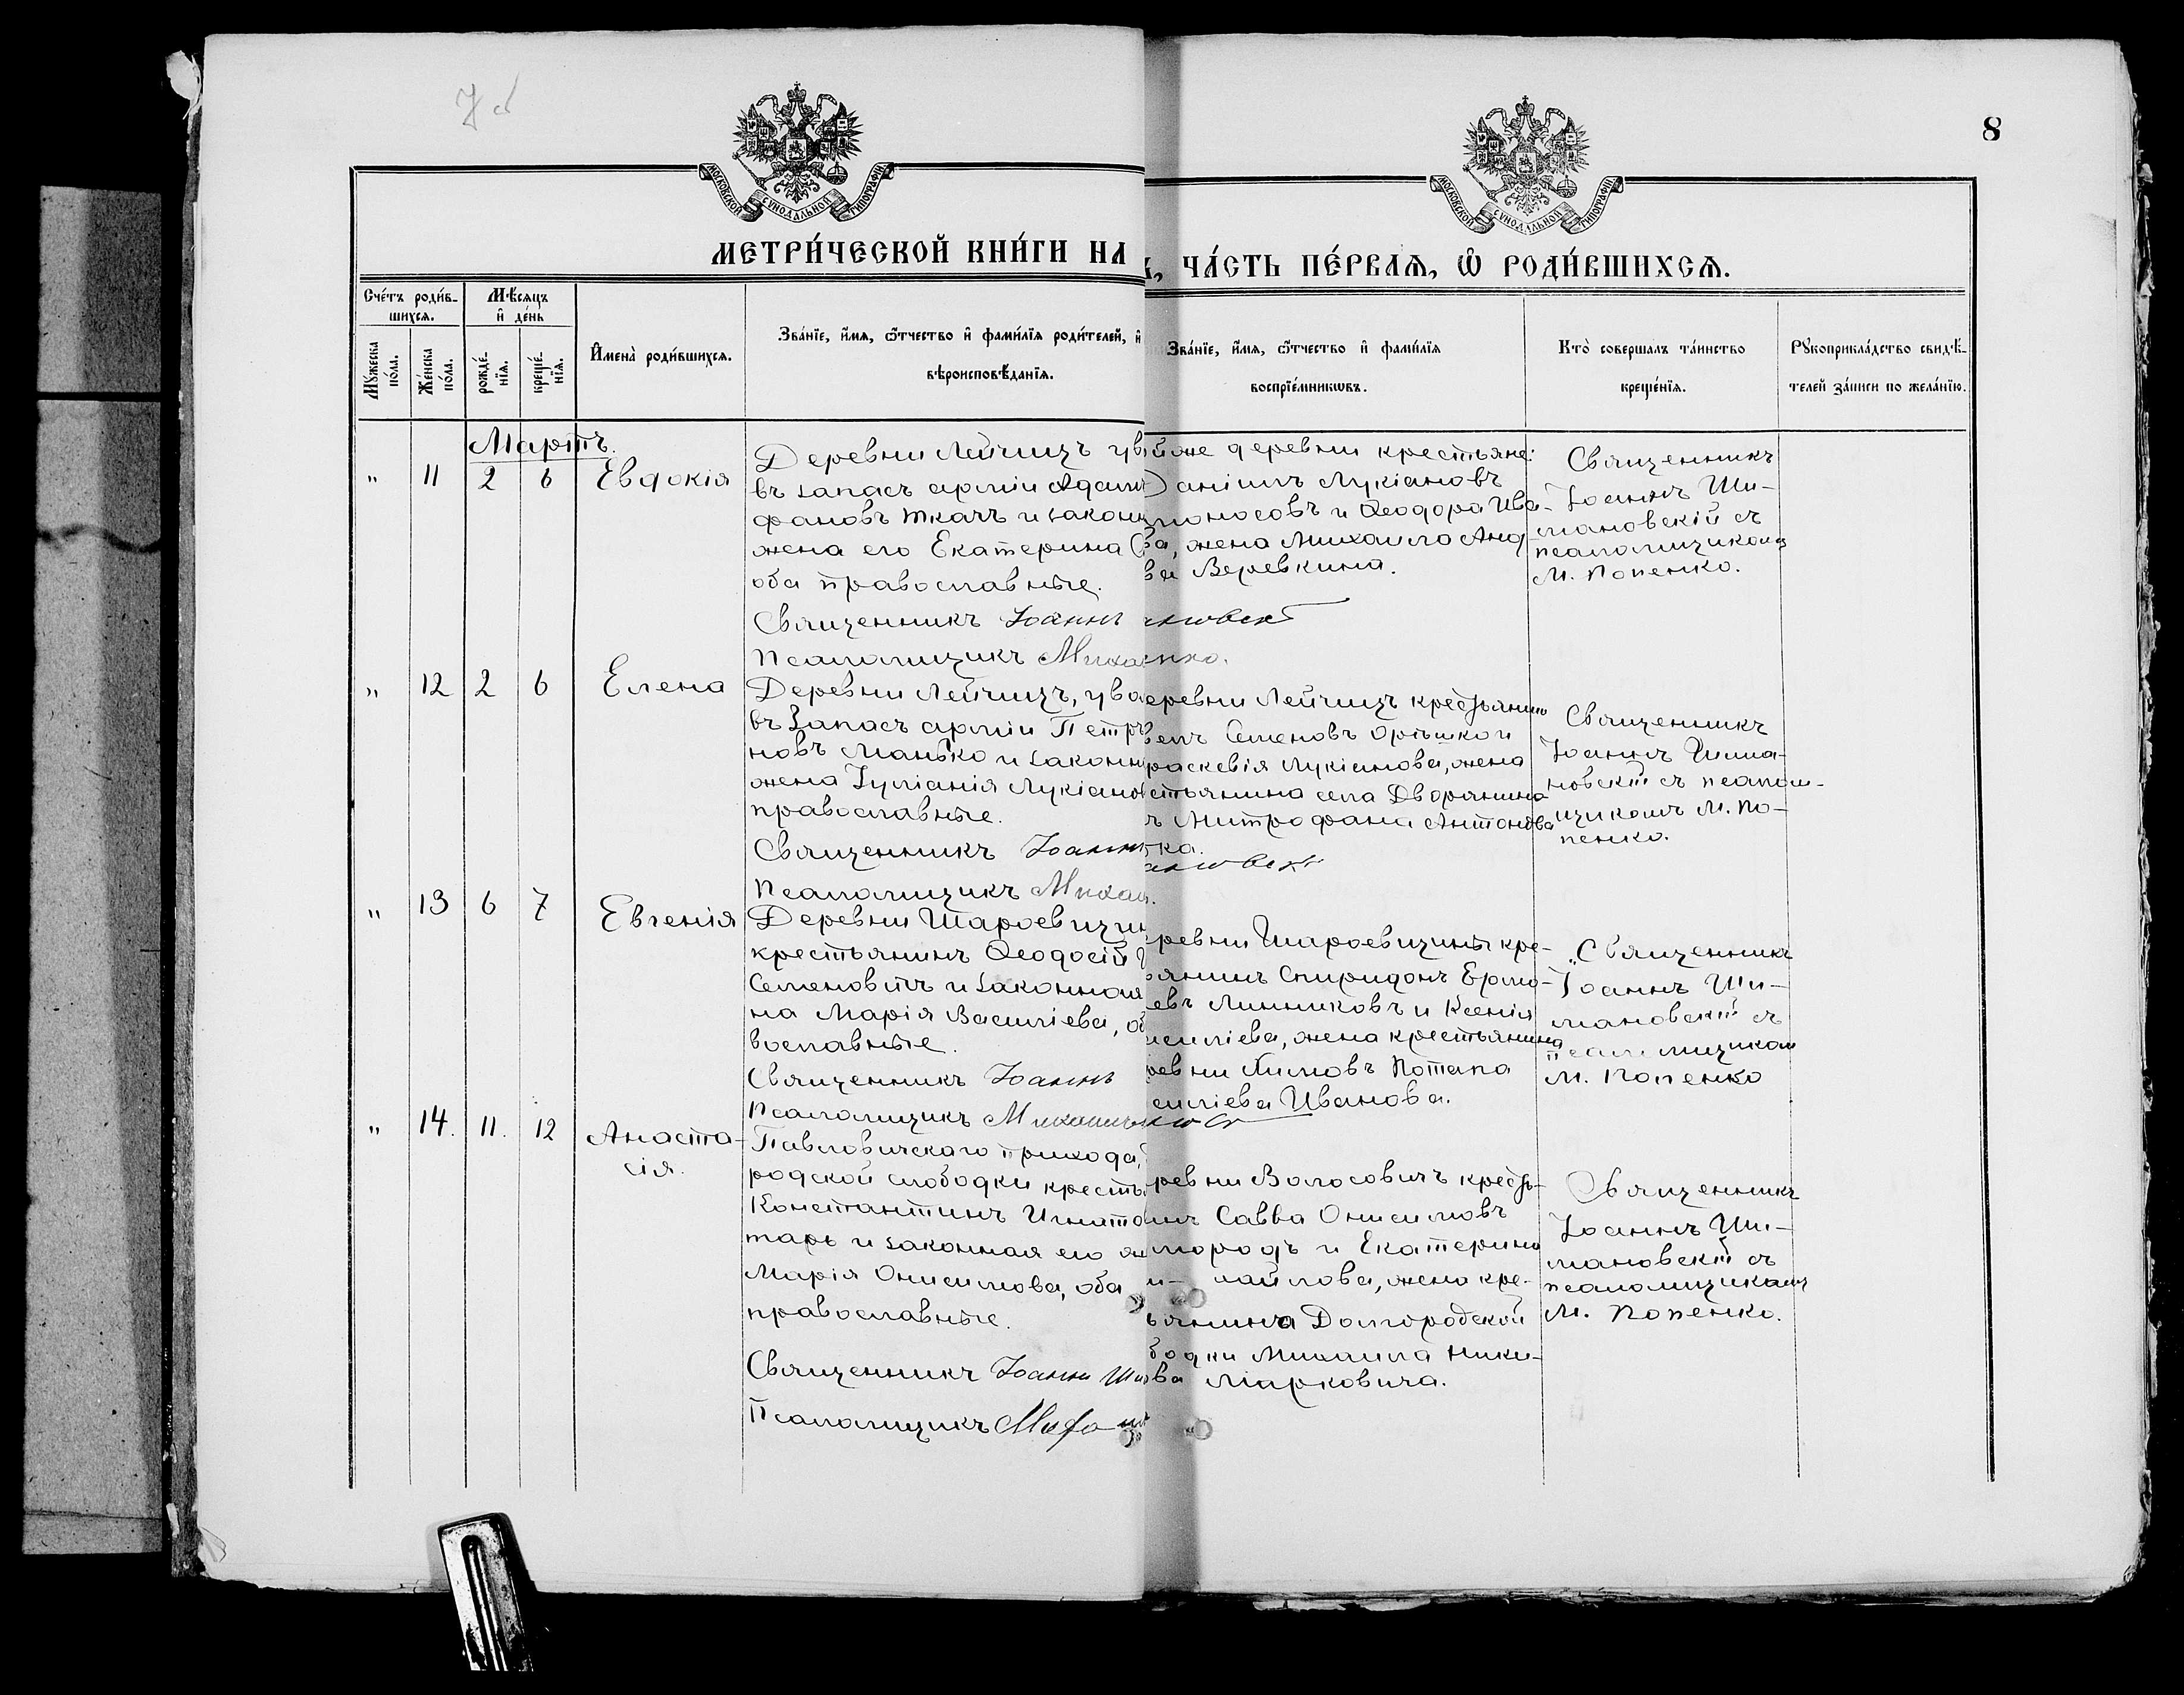 8
МОСКОВСКОЙ СѴНОДАЛЬНОЙ ТИПОГРАФІИ
МОСКОВСКОЙ СѴНОДАЛЬНОЙ ТИПОГРАФІИ
МЕТРИ́ЧЕСКОЙ КНИ́ГИ НА
ЧА́СТЬ ПЕ́РВАЯ, Ѡ РОДИ́ВШИХСЯ.
Сче́тъ роди́в-
шихся.
Мѣсяцъ
и҆ де́нь
Мꙋ́жеска
по́ла.
Же́нска
по́ла.
рожде́-
нїя.
креще́-
нїя.
И҆мена̀ роди́вшихся.
Зва́нїе, и҆́мя, ѻ҆́тчество и҆ фами́лїя роди́телей, и҆
вѣроисповѣданїя.
Зва́нїе, и҆́мя, ѻ҆́тчество и҆ фами́лїя
воспрїе́мниковъ.
Кто̀ совершалъ та́инство
креще́нїя.
Рꙋкоприкла́дство свидѣ-
телей за́писи по жела́нїю.
Мартъ.
" 11 2 6 Евдокія
Деревни Лейчицъ ув
въ запасъ арміи Адам
фановъ Ткачъ и закон
жена его Екатерина
оба православные.
Священникъ Іоаннъ
Псаломщикъ Миха
й же деревни крестьяне:
Даніилъ Лукіановъ
моносовъ и Ѳеодора Ива-
ва, жена Михаила Анд
ва Веревкина.
Священникъ
Іоаннъ Ши-
мановскій съ
псаломщикомъ
М. Попенко.
" 12 2 6 Елена
Деревни Лейчицъ, ува
въ запасъ арміи Петръ
новъ Манько и законн
жена Іуліанія Лукіанов
православные.
Священникъ Іоаннъ
Псаломщикъ Михаи
еревни Лейчицъ крестьянин
велъ Семеновъ Орѣшко и
раскевія Лукіанова, жена
стьянина села Дворянина
ъ Митрофана Антонова
ка.
Священникъ
Іоаннъ Шима-
новскій съ псалом-
щикомъ М. По-
пенко.
" 13 6 7 Евгенія
Деревни Шароевщин
крестьянинъ Ѳеодосій
Семеновичъ и законная
на Марія Василіева, об
вославные.
Священникъ Іоаннъ
Псаломщикъ Михаилъ
ревни Шароевщины кре-
янинъ Спиридонъ Ермо-
евъ Линниковъ и Ксенія
асиліева, жена крестьянина
ревни Химовъ Потапа
силіева Иванова.
Священникъ
Іоаннъ Ши-
мановскій съ
псаломщикомъ
М. Попенко
" 14. 11. 12 Анаста-
сія.
Павловичскаго прихода,
родской слободки кресть
Константинъ Игнато
тарь и законная его ж
Марія Онисимова, оба
православные.
Священникъ Іоаннъ Ши
Псаломщикъ
ревни Волосовичъ кресть-
инъ Савва Онисимовъ
мородъ и Екатерина
хайлова, жена кре-
ьянина Долгородской
бодки Михаила Ники-
ва Марковича.
Священникъ
Іоаннъ Ши-
мановскій съ
псаломщикомъ
М. Попенко.